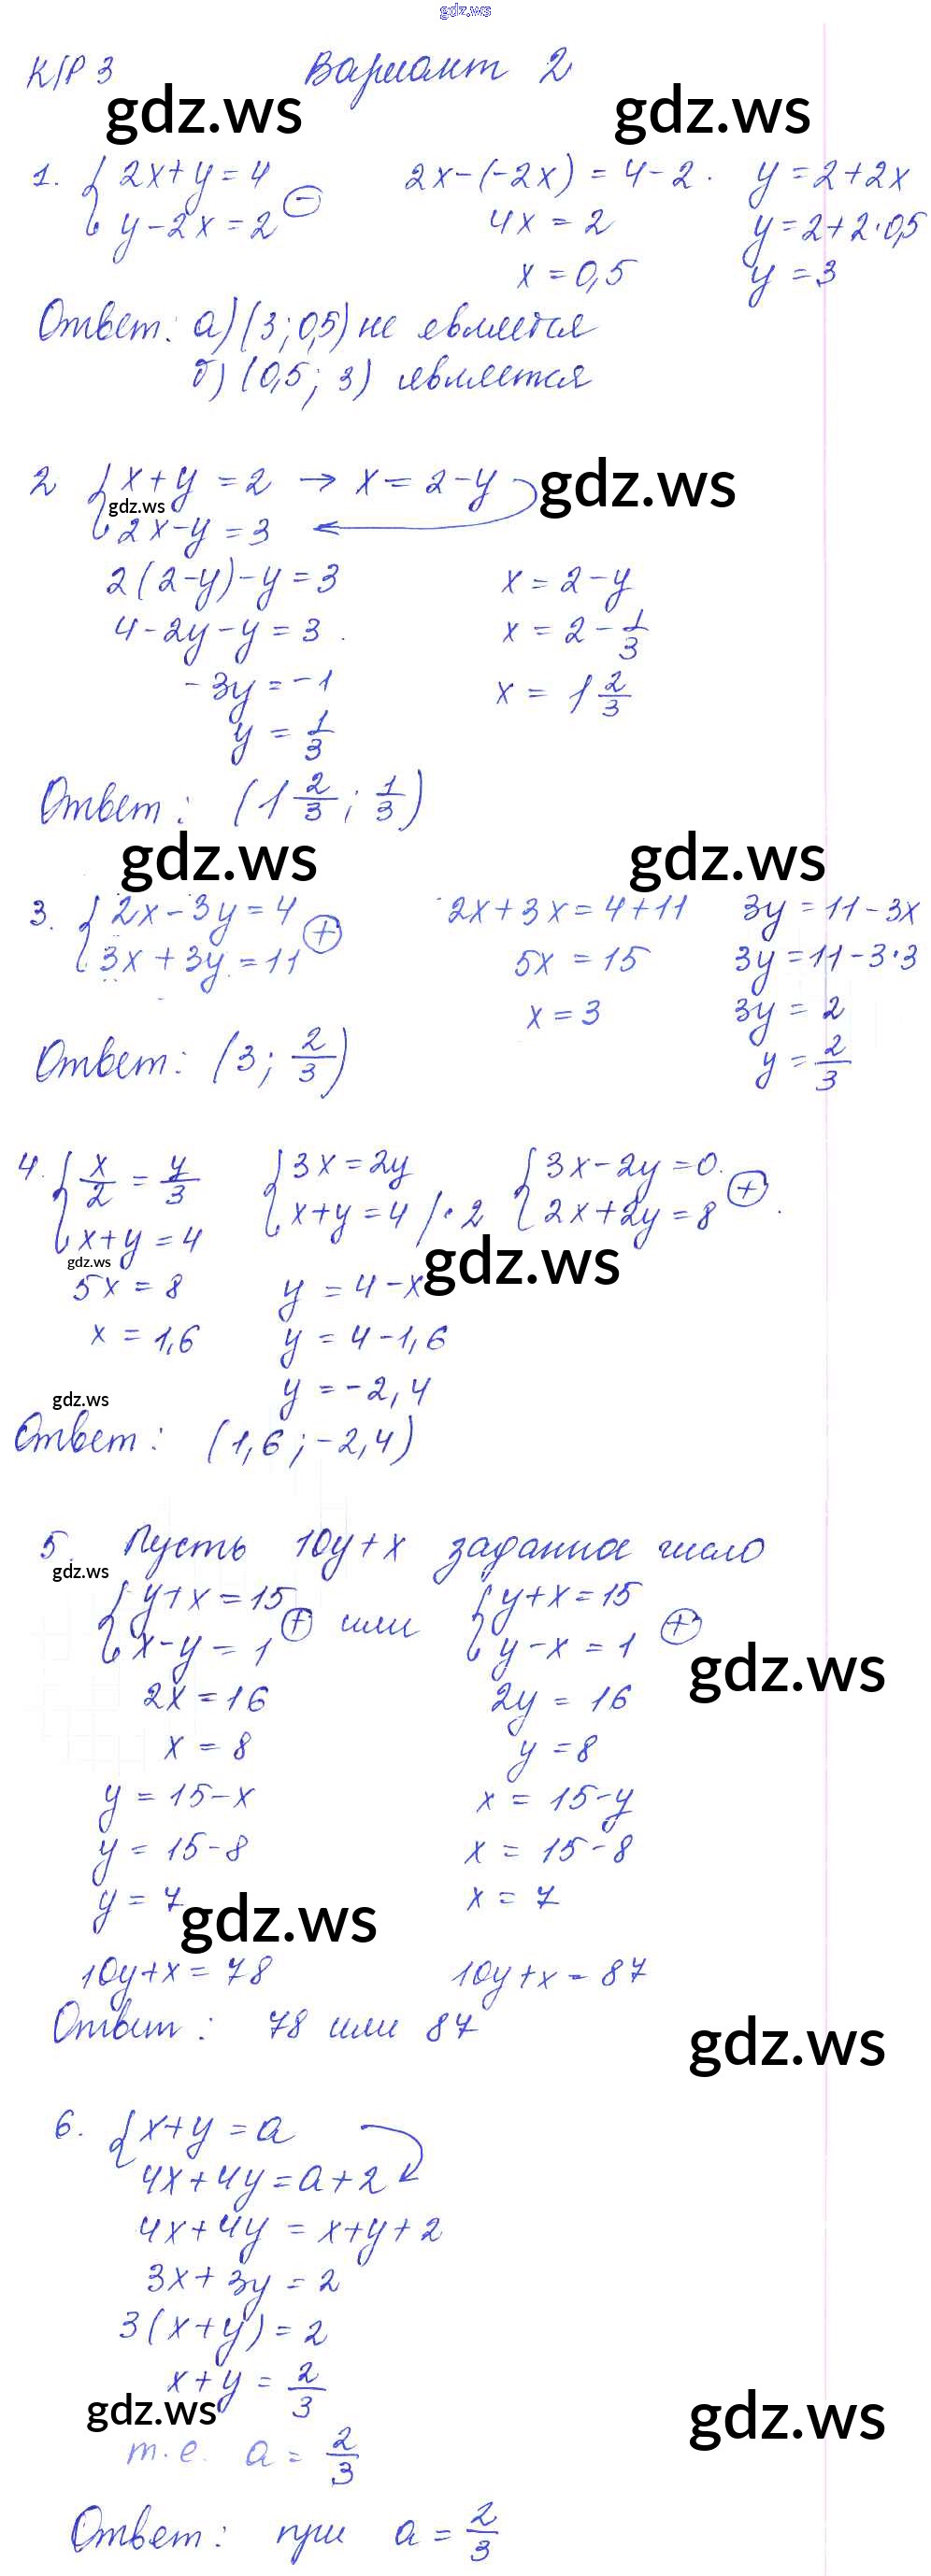 gdz.ws
К/Р 3 Вариант 2
gdz.ws gdz.ws
1. { 2x+y=4 2x-(-2x)=4-2. y=2+2x
y-2x=2 ⊖ 4x=2 y=2+2·0,5
x=0,5 y=3
Ответ: а)(3;0,5) не является
б)(0,5; 3) является
2 { x+y=2 → x=2-y gdz.ws
gdz.ws
2x-y=3 ←
2(2-y)-y=3 x=2-y
4-2y-y=3. x=2-1/3
-3y=-1 x=1 2/3
y=1/3
Ответ: (1 2/3; 1/3)
gdz.ws gdz.ws
3. { 2x-3y=4 2x+3x=4+11 3y=11-3x
3x+3y=11 ⊕ 5x=15 3y=11-3·3
x=3 3y=2
Ответ: (3; 2/3) y=2/3
4. { x/2=y/3 { 3x=2y { 3x-2y=0.
x+y=4 x+y=4 /·2 2x+2y=8 ⊕
gdz.ws gdz.ws
5x=8 y=4-x
x=1,6 y=4-1,6
gdz.ws y=-2,4
Ответ: (1,6;-2,4)
5. Пусть 10y+x заданное число
gdz.ws
{ y+x=15 ⊕ или { y+x=15 ⊕
x-y=1 y-x=1 gdz.ws
2x=16 2y=16
x=8 y=8
y=15-x x=15-y
y=15-8 x=15-8
y=7 gdz.ws x=7
10y+x=78 10y+x=87
Ответ: 78 или 87 gdz.ws
6. { x+y=a
4x+4y=a+2
4x+4y=x+y+2
3x+3y=2
3(x+y)=2
x+y=2/3
gdz.ws gdz.ws
т.е. a=2/3
Ответ: при a=2/3